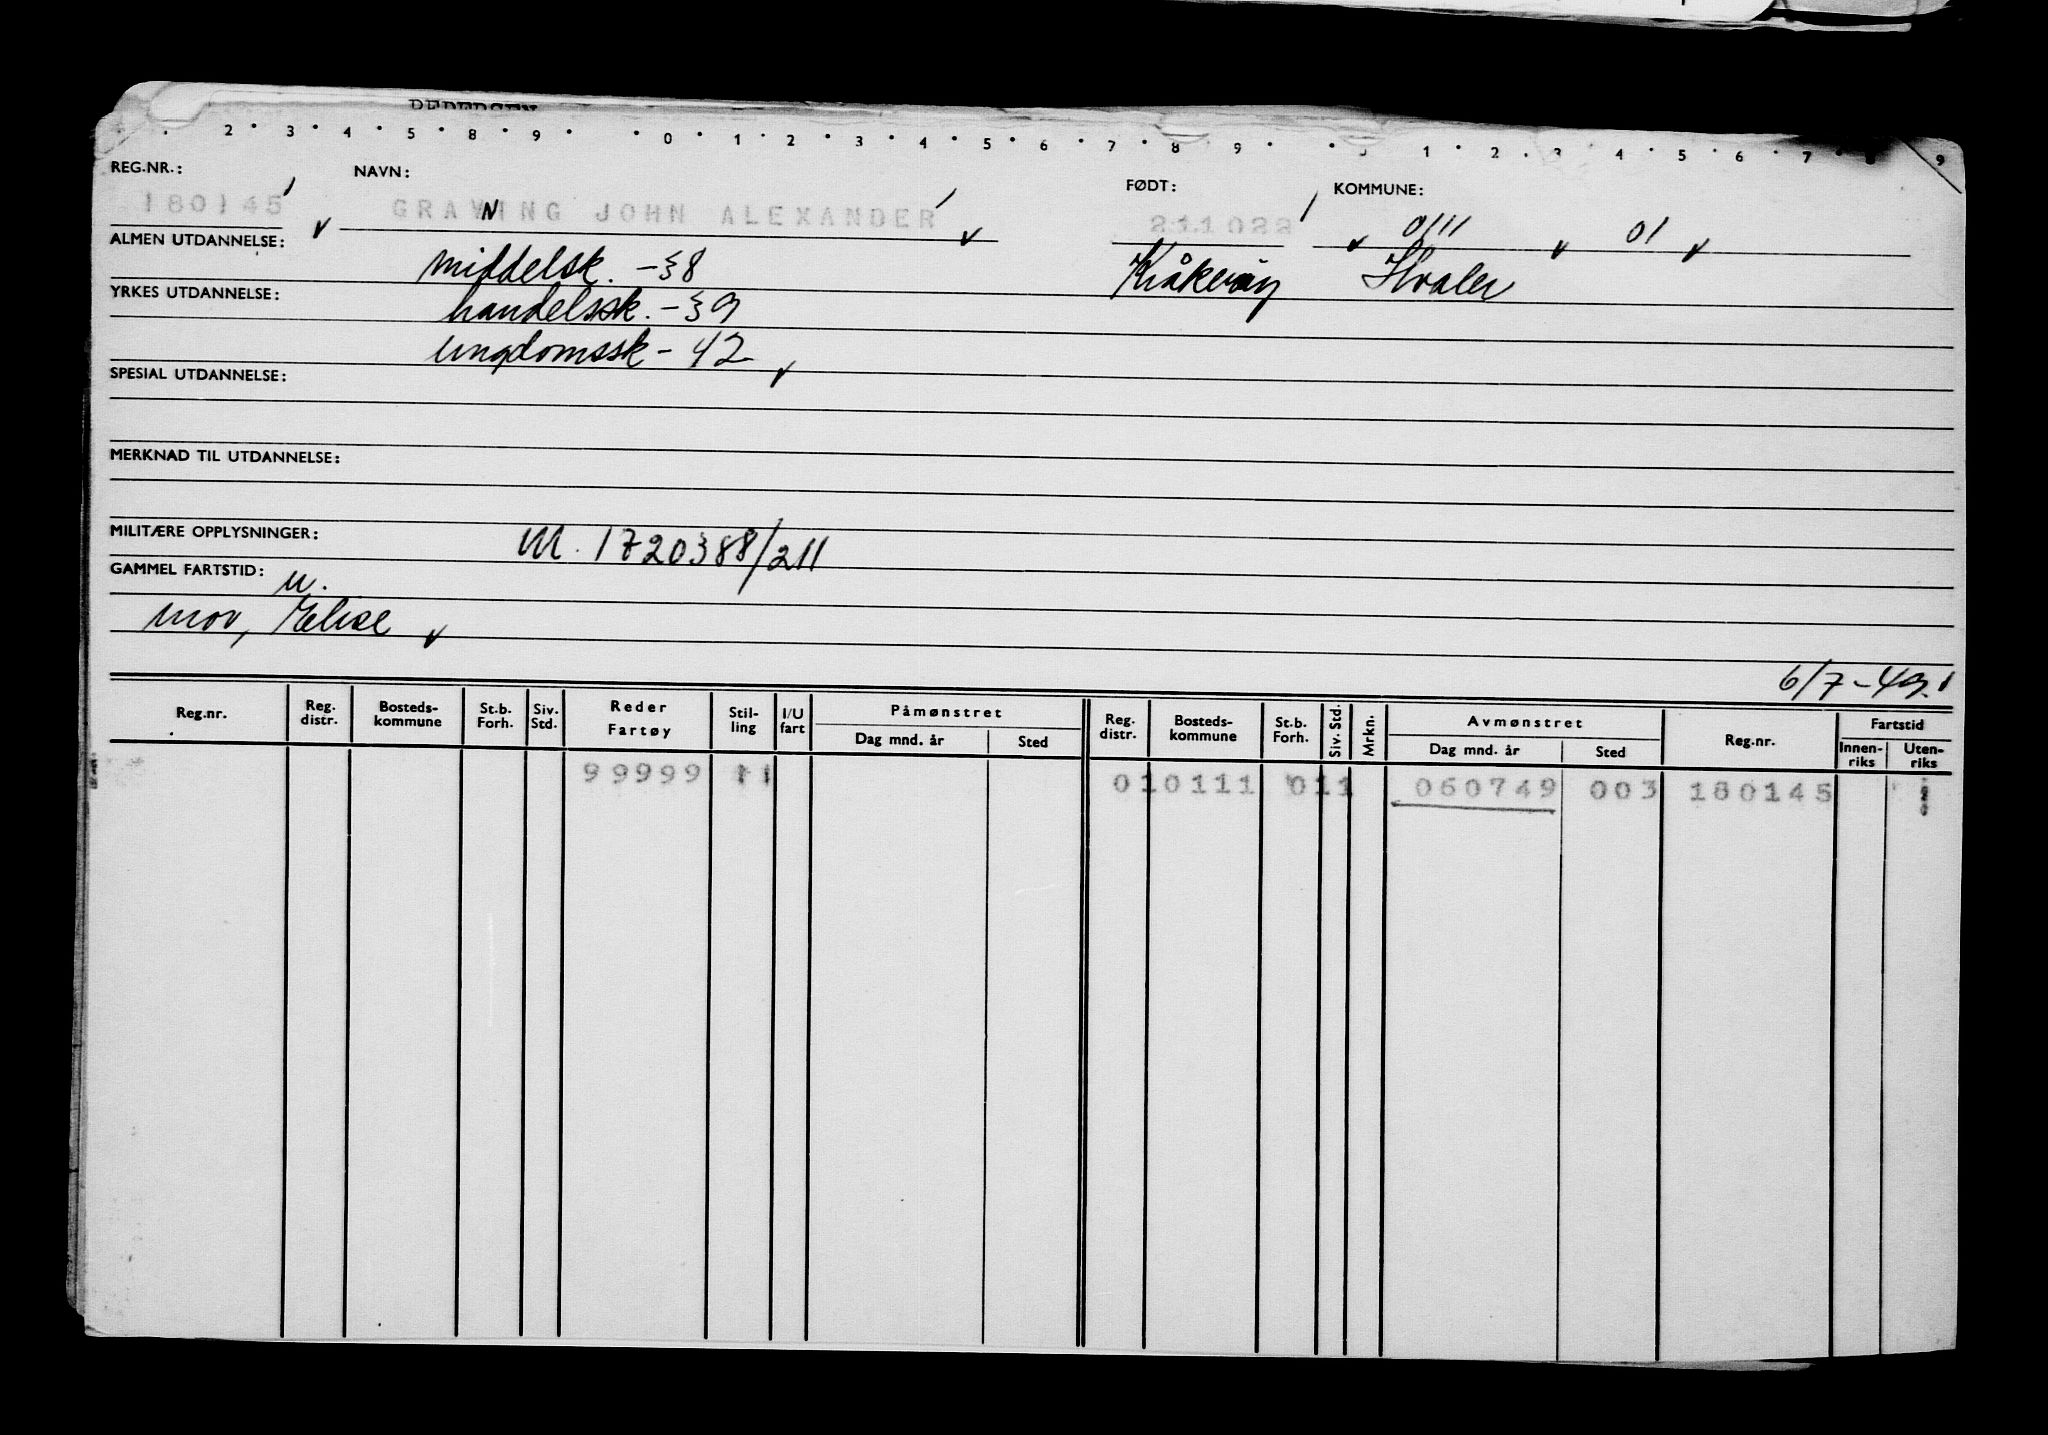 2 3 4 5 8 9 0 1 2 3 4 5 6 7 8 9 1 2 3 4 5 6 7 8 9
REG.NR.: NAVN: FØDT: KOMMUNE:
180145 GRAVNING JOHN ALEXANDER 211022 0111 01
ALMEN UTDANNELSE: middelsk. -38 Kråkerøy Hvaler
YRKES UTDANNELSE: handelssk. -39
ungdomssk - 42
SPESIAL UTDANNELSE:
MERKNAD TIL UTDANNELSE:
MILITÆRE OPPLYSNINGER: M. 1720388/211
GAMMEL FARTSTID: u.
mor, Elise
6/7-49.
Reg.nr. Reg. distr. Bosteds-kommune St.b. Forh. Siv. Std. Reder Fartøy Stil-ling I/U fart Påmønstret Dag mnd. år Sted Reg. distr. Bosteds-kommune St.b. Forh. Siv. Std. Mrkn. Avmønstret Dag mnd. år Sted Reg.nr. Fartstid Innen-riks Uten-riks
99999 11 010111 011 060749 003 180145